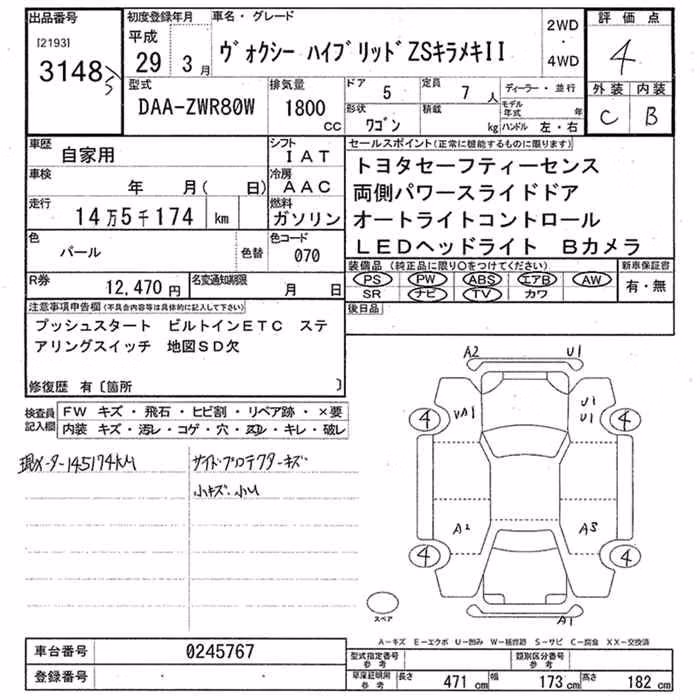 出品番号 初度登録年月 車名・グレード 評価点
[2193] 平成 2WD
31485 29 3月 ヴォクシー ハイブリッドZSキラメキII ・ 4
4WD
型式 排気量 ドア 5 定員 7人 ディーラー・並行 外装 内装
DAA-ZWR80W 1800 CC 形状 ワゴン 積載 kg モデル年式 年 C B
ハンドル 左・右
車歴 自家用 シフト IAT セールスポイント(正常に機能するものに限ります)
トヨタセーフティーセンス
車検 年 月( 日) 冷房 AAC 両側パワースライドドア
走行 14万5千174 km 燃料 ガソリン オートライトコントロール
色 パール 色替 色コード 070 LEDヘッドライト Bカメラ
装備品(純正品に限り○をつけてください) 新車保証書
R券 12,470円 名変通知期限 月 日 PS PW ABS エアB AW 有・無
SR ナビ TV カワ
注意事項申告欄(不具合内容等は具体的に記入して下さい) 後日品
プッシュスタート ビルトインETC ステ
アリングスイッチ 地図SD欠
修復歴 有〔箇所 〕
検査員記入欄 FW キズ・飛石・ヒビ割・リペア跡・×要
内装 キズ・汚レ・コゲ・穴・キレ・破レ
現メーター145174KM サイドプロテクターキズ
小キズ・小U
A2 U1
4 U1 U1 4
A2 A3
4 4
スペア A1
A-キズ E-エクボ U-凹み W-補修跡 S-サビ C-腐食 XX-交換済
車台番号 0245767 型式指定番号 参考 類別区分番号 参考
登録番号 車庫証明用 参考 長さ 471cm 幅 173cm 高さ 182cm